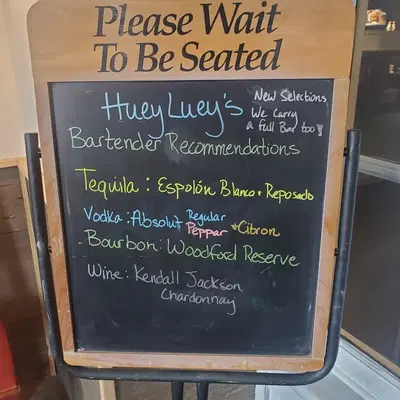 Please Wait
To Be Seated
Huey Luey's
New Selections
We Carry
a full Bar too!
Bartender Recommendations
Tequila : Espolón Blanco + Reposado
Vodka : Absolut Regular
Peppar + Citron
Bourbon: Woodford Reserve
Wine: Kendall Jackson
Chardonnay